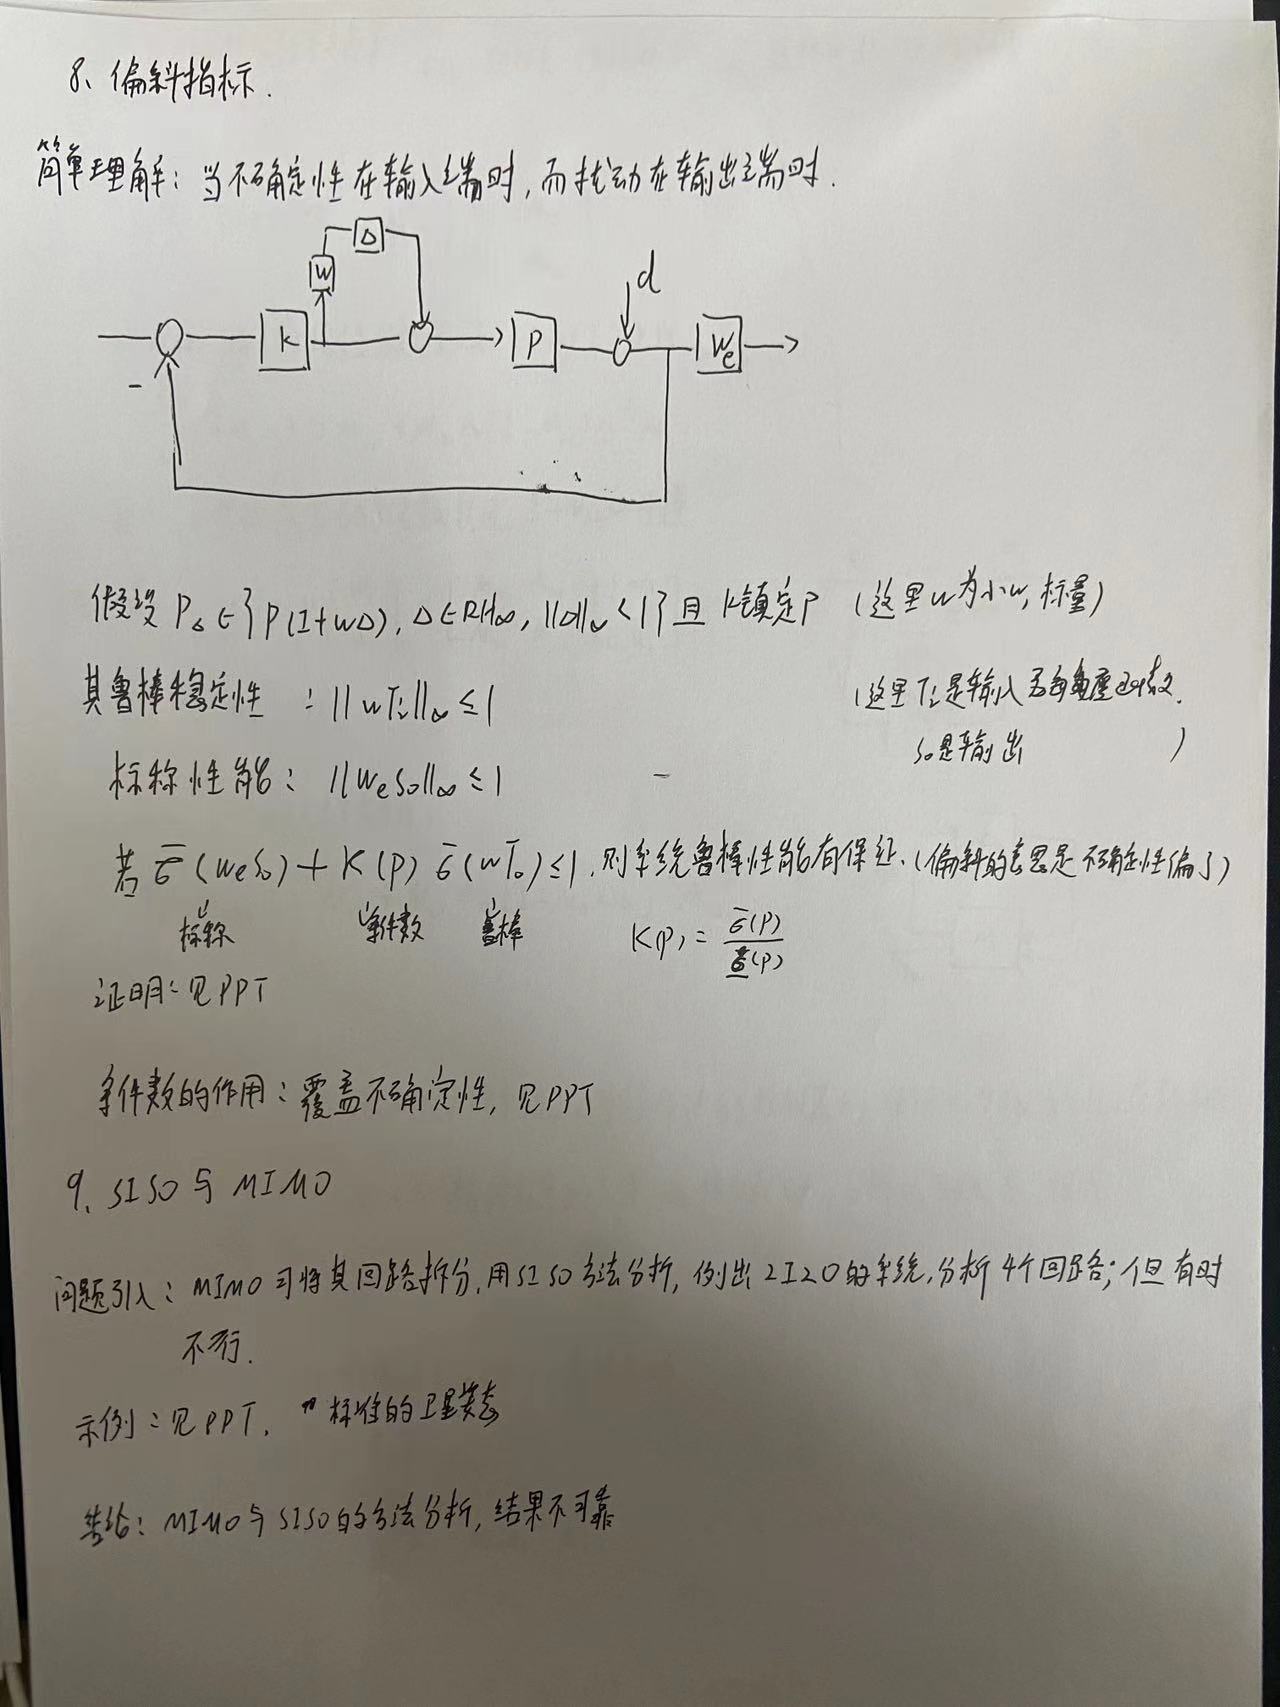 8、偏斜指标.
简单理解：当不确定性在输入端时,而扰动在输出端时.
Δ
w
d
k
P
We
-
假设 PΔ∈{P(I+wΔ), Δ∈RH∞, ||Δ||∞<1}且 K镇定P (这里w为小w,标量)
其鲁棒稳定性 : ||wTi||∞≤1
(这里Ti是输入 角度
So是输出 )
标称性能: ||WeSo||∞≤1
若 σ̅(WeSo)+K(P) σ̅(wTo)≤1,则系统鲁棒性能有保证.(偏斜的意思是不确定性偏了)
标称 条件数 鲁棒 K(P)=σ̅(P)/σ̲(P)
证明:见PPT
条件数的作用：覆盖不确定性, 见PPT
9. SISO与MIMO
问题引入：MIMO可将其回路拆分,用SISO方法分析,例出2I2O的系统,分析4个回路;但有时
不行.
示例:见PPT, 标准的卫星姿态
总结：MIMO与SISO的方法分析,结果不可靠